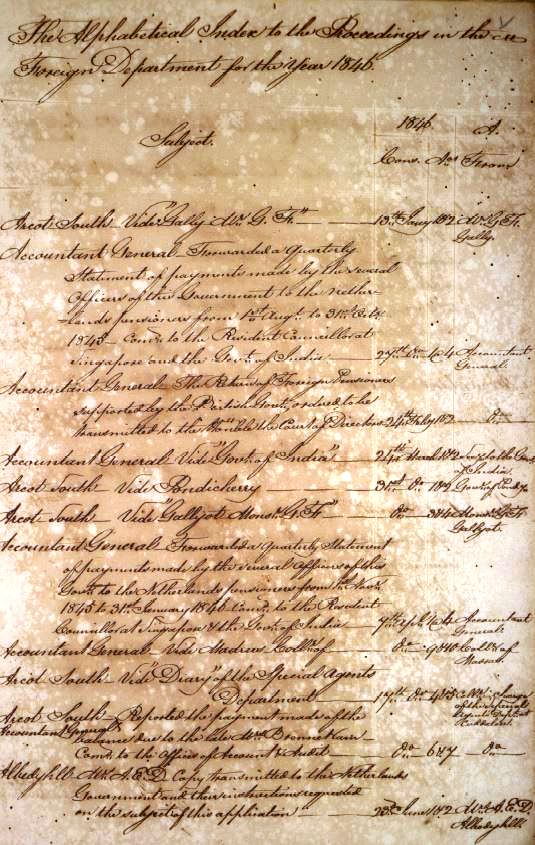 The Alphabetical Index to the Proceedings in the
Foreign Department for the Year 1846.
1846 A.
Subject. Cons. Nos From
Arcot South Vide "Gally Mr G. F." 13th Jany 1&2 Mr G. F.
Gally.
Accountant General Forwarded a quarterly
Statement of payments made by the several
Officers of this Government to the nether-
lands pensioners from 1st Augt to 31st Octr
1845 Comd to the Resident Councillor at
Singapore and the Govt of India 27th Do Accountant
General.
Accountant General The Return of Foreign Pensioners
supported by the British Govt ordered to be
transmitted to the Honble the Court of Directors 24th Feby 1&2 Do
Accountant General Vide "Govt of India" 24th March 1&2 Secy to the Govt
of India.
Arcot South Vide Pondicherry 31st Do 1&2
Arcot South Vide Gallyot Monsr G. F. Do 3&4 Monsr G. F.
Gallyot.
Accountant General Forwarded a quarterly Statement
of payments made by the several Officers of this
Govt to the Netherlands pensioners from 1st Novr
1845 to 31st January 1846 Comd to the Resident
Councillor at Singapore & the Govt of India 7th Apl Accountant
General.
Accountant General Vide Madras Collr of Do Collr of
Madras.
Arcot South Vide "Diary" of the Special Agents
Department 17th Do
Cuddalore.
Arcot South Reported the payment made of the
Accountant General balance due to the late Mrs
Comd to the Office of Account & Audit Do 6&7 Do
Albedyhll Mr A. E. D. Copy transmitted to the Netherlands
Government and their instructions requested
on the subject of this application 23rd June 1&2 Mr A. E. D.
Albedyhll.